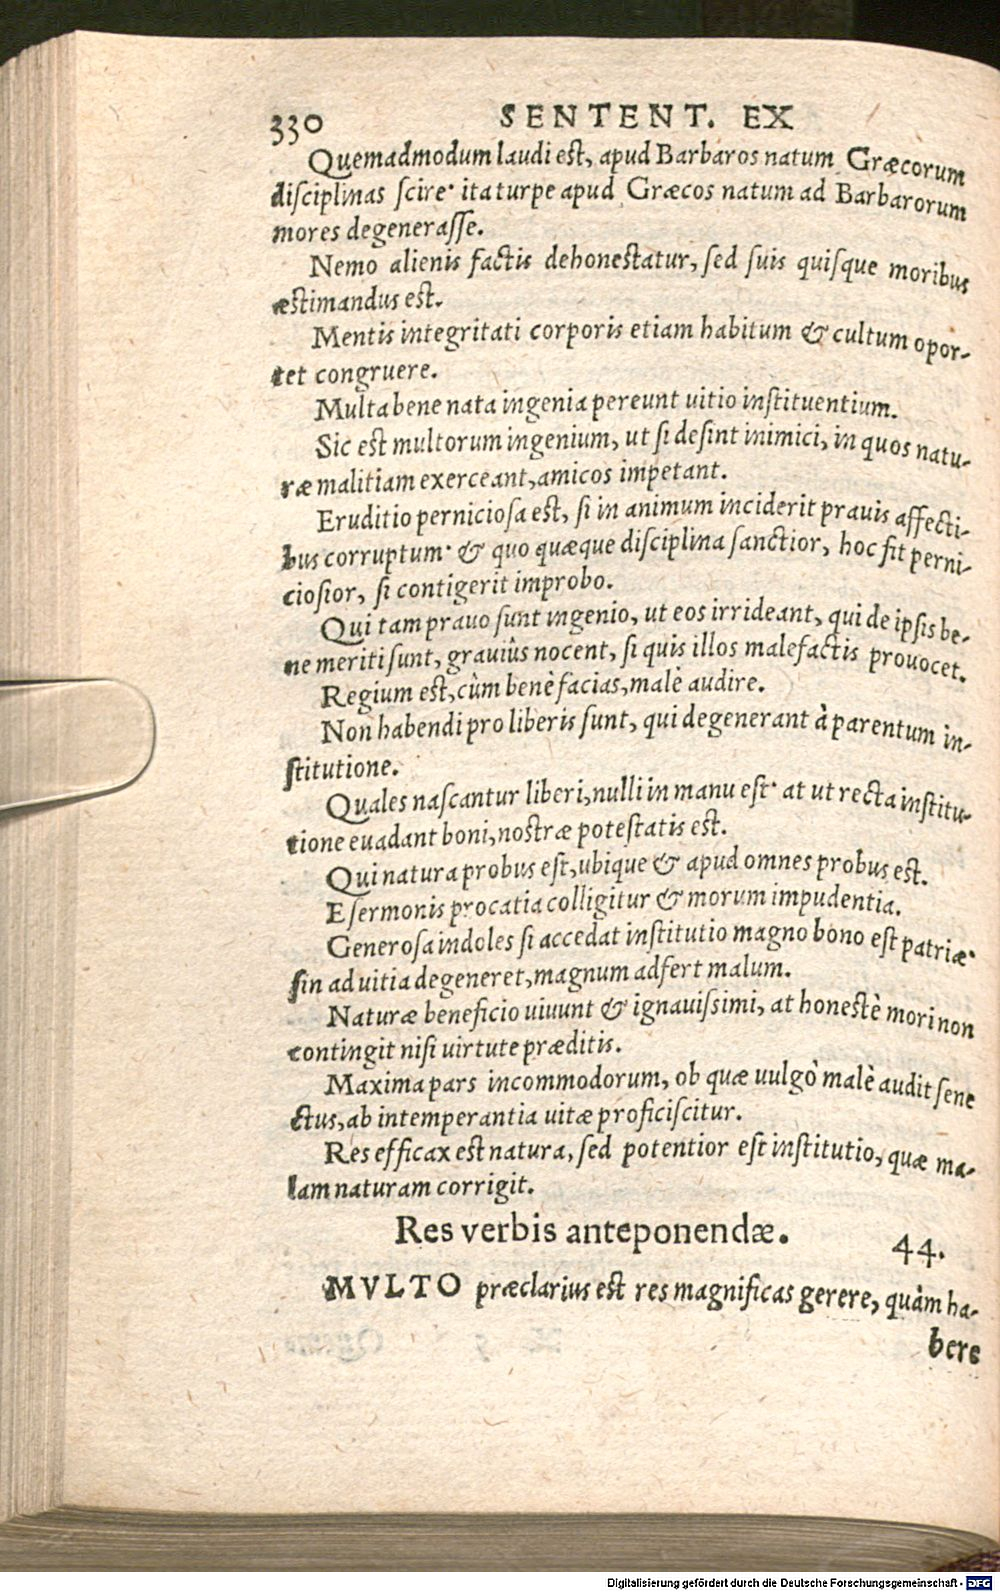 330 SENTENT. EX
Quemadmodum laudi est, apud Barbaros natum Græcorum
disciplinas scire· ita turpe apud Græcos natum ad Barbarorum
mores degenerasse.
Nemo alienis factis dehonestatur, sed suis quisque moribus
æstimandus est.
Mentis integritati corporis etiam habitum & cultum opor-
tet congruere.
Multa bene nata ingenia pereunt uitio instituentium.
Sic est multorum ingenium, ut si desint inimici, in quos natu-
ræ malitiam exerceant, amicos impetant.
Eruditio perniciosa est, si in animum inciderit prauis affecti-
bus corruptum· & quo quæque disciplina sanctior, hoc fit perni-
ciosior, si contigerit improbo.
Qui tam prauo sunt ingenio, ut eos irrideant, qui de ipsis be-
ne meriti sunt, grauiùs nocent, si quis illos malefactis prouocet.
Regium est, cùm benè facias, malè audire.
Non habendi pro liberis sunt, qui degenerant à parentum in-
stitutione.
Quales nascantur liberi, nulli in manu est· at ut recta institu-
tione euadant boni, nostræ potestatis est.
Qui natura probus est, ubique & apud omnes probus est.
E sermonis procatia colligitur & morum impudentia.
Generosa indoles si accedat institutio magno bono est patriæ·
sin ad uitia degeneret, magnum adfert malum.
Naturæ beneficio uiuunt & ignauissimi, at honestè mori non
contingit nisi uirtute præditis.
Maxima pars incommodorum, ob quæ uulgò malè audit sene
ctus, ab intemperantia uitæ proficiscitur.
Res efficax est natura, sed potentior est institutio, quæ ma-
lam naturam corrigit.
Res verbis anteponendæ. 44.
MVLTO præclarius est res magnificas gerere, quàm ha-
bere
Digitalisierung gefördert durch die Deutsche Forschungsgemeinschaft - DFG